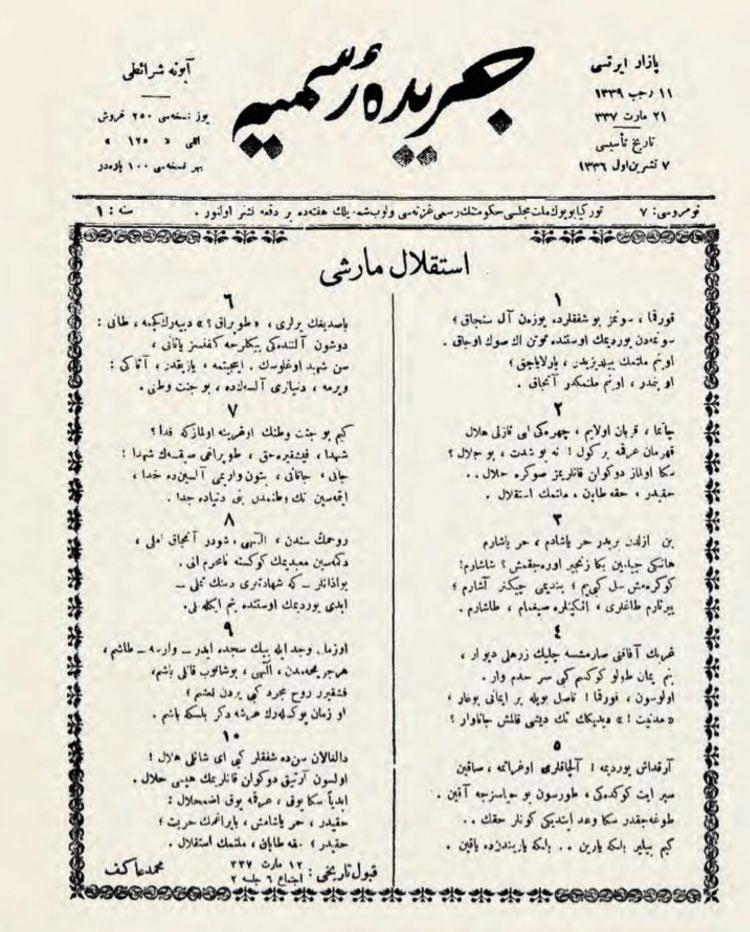 جريدۀ رسميه
پازار ايرتسى
١١ رجب ١٣٣٩
٢١ مارت ٣٣٧
تاريخ تأسيسى
٧ تشرين اول ١٣٣٦
آبونه شرائطى
يوز نسخه‌سى ٢٥٠ غروش
اللى » ١٢٥ »
بهر نسخه‌سى ١٠٠ پاره‌در
نومروسى: ٧ توركيا بويوك ملت مجلسى حكومتنك رسمى غزته‌سى اولوب شمديلك هفته‌ده بر دفعه نشر اولنور . سنه : ١
استقلال مارشى
١
قورقما ، سونمز بو شفقلرده يوزن آل سنجاق ؛
سونمه‌دن يورديمك اوستنده توتن اك صوك اوجاق .
او بنم ملتمك ييلديزيدر ، پارلاياجق ؛
او بنمدر ، او بنم ملتمكدر آنجاق .
٢
چاتما ، قربان اولايم ، چهره‌كى اى نازلى هلال
قهرمان عرقمه بر كول ! نه بو شدت ، بو جلال ؟
سكا اولماز دوكولن قانلريمز صوكره حلال . .
حقيدر ، حقه طاپان ، ملتمك استقلال .
٣
بن ازلدن بريدر حر ياشادم ، حر ياشارم
هانكى چيلغين بكا زنجير اوره‌جقمش ؟ شاشارم !
كوكره‌مش سل كبى‌يم ؛ بنديمى چيكنر آشارم ؛
ييرتارم طاغلرى ، انكينلره صيغمام ، طاشارم .
٤
غربك آفاقنى صارمشسه چليك زرهلى ديوار ،
بنم ايمان طولو كوكسم كبى سر حدم وار .
اولوسون ، قورقما ! ناصل بويله بر ايمانى بوغار ،
« مدنيت ! » ديديكك تك ديشى قالمش جاناوار ؟
٥
آرقداش يورديمه ! آلچاقلرى اوغراتمه ، صاقين
سپر ايت كوكده‌كى ، طورسون بو حياسزجه آقين .
طوغه‌جقدر سكا وعد ايتديكى كونلر حقك . .
كيم بيلير بلكه يارين . . بلكه ياريندن ده ياقين .
٦
باصديغك يرلرى ، « طوپراق ؟ » دييه‌رك كچمه ، طانى :
دوشون آلتنده‌كى بيكلرجه كفنسز ياتانى ،
سن شهيد اوغلوسك . اينجيتمه ، يازيقدر ، آتاكى :
ويرمه ، دنيالرى آلسه‌كده ، بو جنت وطنى .
٧
كيم بو جنت وطنك اوغرينه اولمازكه فدا ؟
شهدا ، فيشقيره‌جق ، طوپراغى صيقسه‌ك شهدا !
جانى ، جانانى ، بتون واريمى آلسين‌ده خدا ،
ايتمه‌سين تك وطنمدن بنى دنياده جدا .
٨
روحمك سندن ، الٓهى ، شودر آنجاق املى ،
دكمه‌سين معبديمك كوكسنه نامحرم الى .
بو اذانلر ـ كه شهادتلرى دينك تملى ـ
ابدى يورديمك اوستنده بنم ايكله‌لى .
٩
او زمان وجد ايله بيك سجده ايدر ـ وارسه ـ طاشم ،
هر جريحه‌مدن ، الٓهى ، بوشانوب قانلى ياشم ،
فيشقيرر روح مجرد كبى يردن نعشم ؛
او زمان يوكسله‌رك عرشه دكر بلكه باشم .
١٠
دالغالان سن‌ده شفقلر كبى اى شانلى هلال !
اولسون آرتيق دوكولن قانلريمك هپسى حلال .
ابدياً سكا يوق ، عرقمه يوق اضمحلال :
حقيدر ، حر ياشامش ، بايراغمك حريت ؛
حقيدر ؛ حقه طاپان ، ملتمك استقلال .
قبول تاريخى : ١٢ مارت ٣٣٧
اجتماع ٦ جلسه ٢
محمد عاكف